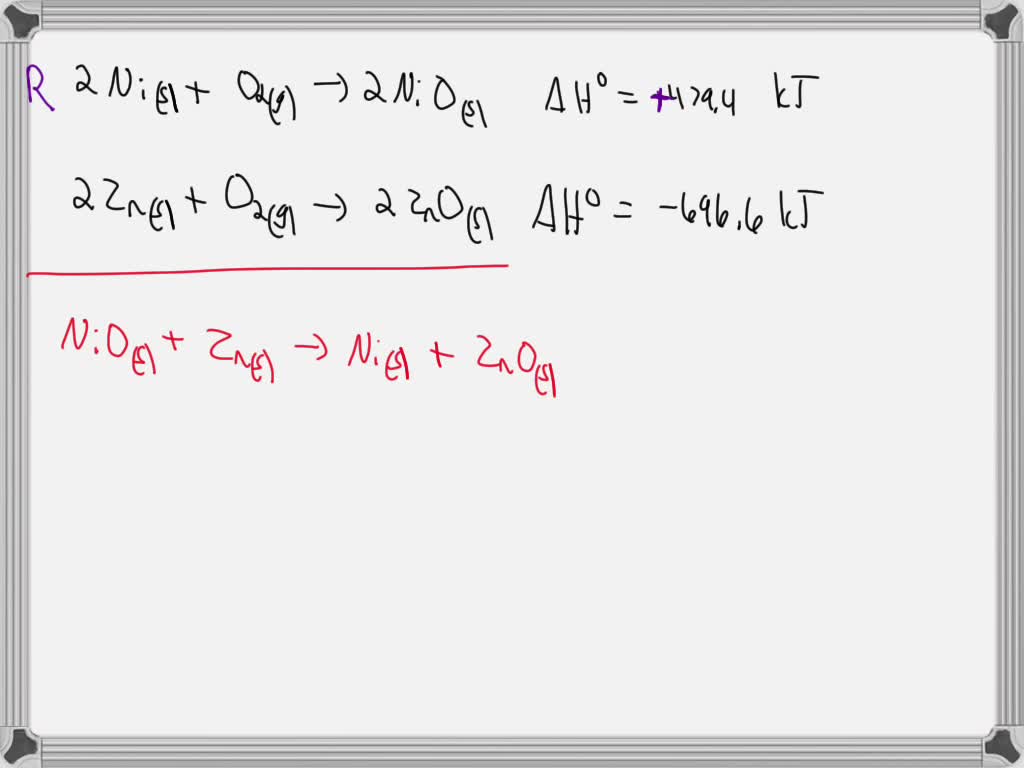 R 2Ni(s) + O₂(g) → 2NiO(s) ΔH° = +479.4 kJ
2Zn(s) + O₂(g) → 2ZnO(s) ΔH° = -696.6 kJ
NiO(s) + Zn(s) → Ni(s) + ZnO(s)